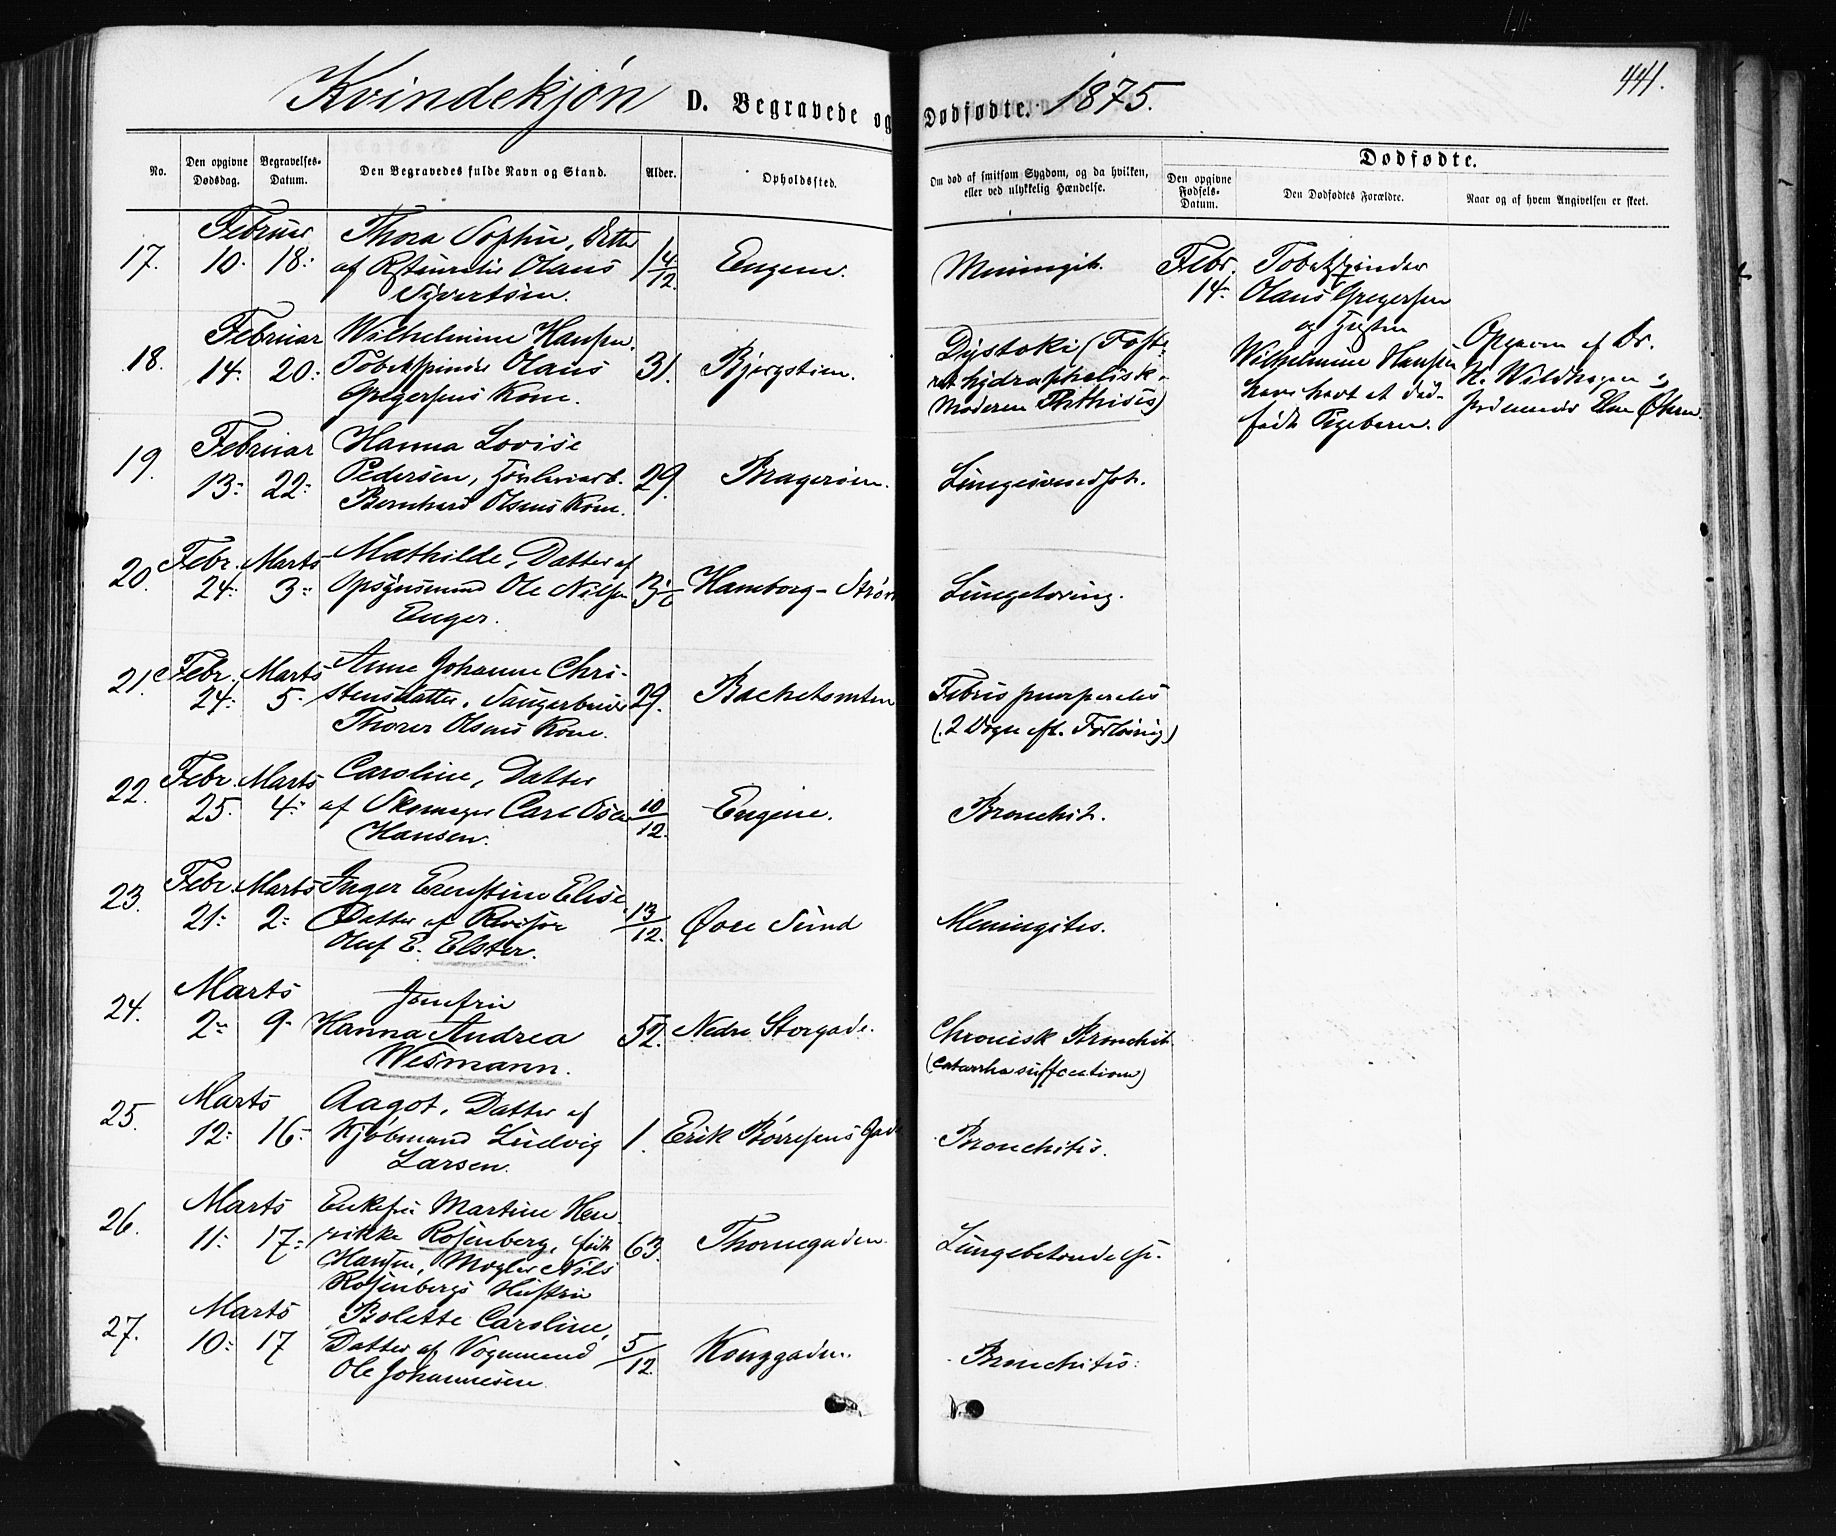 Kvindekjøn D. Begravede og Dødfødte. 1875.
441.
No.
Den opgivne Dødsdag.
Begravelses-Datum.
Den Begravedes fulde Navn og Stand.
Alder.
Opholdssted.
Om død af smitsom Sygdom, og da hvilken,
eller ved ulykkelig Hændelse.
Dødfødte.
Den opgivne Fødsels-Datum.
Den Dødfødtes Forældre.
Naar og af hvem Angivelsen er skeet.
17.
Februar
10. 18.
Thora Sophie, Dtter
af Olaus
Sivertsen.
14/12
Engene.
Febr.
14.
Tobakspinder
Olaus Gregersen
og Hustru
Wilhelmine Hansen
havt et død-
født Pigebarn.
Opgaven af Dr.
18.
Februar
14. 20.
Wilhelmine Hansen.
Tobakspinder Olaus
Gregersens Kone.
31.
Bjergstien.
Dystoki (Foste-
ret hydrophelisk -
Moderen Phthisis)
19.
Februar
13. 22.
Hanna Lovise
Pedersen,
Bernhard Olsens Kone.
29.
Bragerøen.
20.
Febr. Marts
24. 3.
Mathilde, Datter af
Opsynsmand Ole Nilsen
Enger.
Hamborg-Strøm
Lungetæring.
21.
Febr. Marts
24. 5.
Anne Johanne Chri-
stensdatter,
Thorer Olsens Kone.
29.
Febris puerperalis
(2 Dage eft. Forløsning)
22.
Febr. Marts
25. 4.
Caroline, Datter
af Skomager Carl
Hansen.
10/12.
Engene.
Bronchit.
23.
Febr. Marts
21. 2.
Inger Ernstine Elise
Datter af Revisor
Oluf E. Elster.
13/12.
Øvre Sund
Meningites.
24.
Marts
2. 9.
Jomfru
Hanna Andrea
Wesmann.
52.
Nedre Storgade.
Chronisk Bronchit.
25.
Marts
12. 16.
Aagot, Datter af
Kjøbmand Ludvig
Larsen.
1.
Erik Børresens Gade
Bronchitis.
26.
Marts
11. 17.
Enkefru Martine Hen-
rikke Rosenberg, født
Hansen, Mægler Nils
Rosenbergs Hustru
63.
Thornegaden.
Lungebetændelse.
27.
Marts
10. 17
Bolette Caroline,
Datter af Vognmand
Ole Johannesen
5/12.
Konggaden.
Bronchitis.